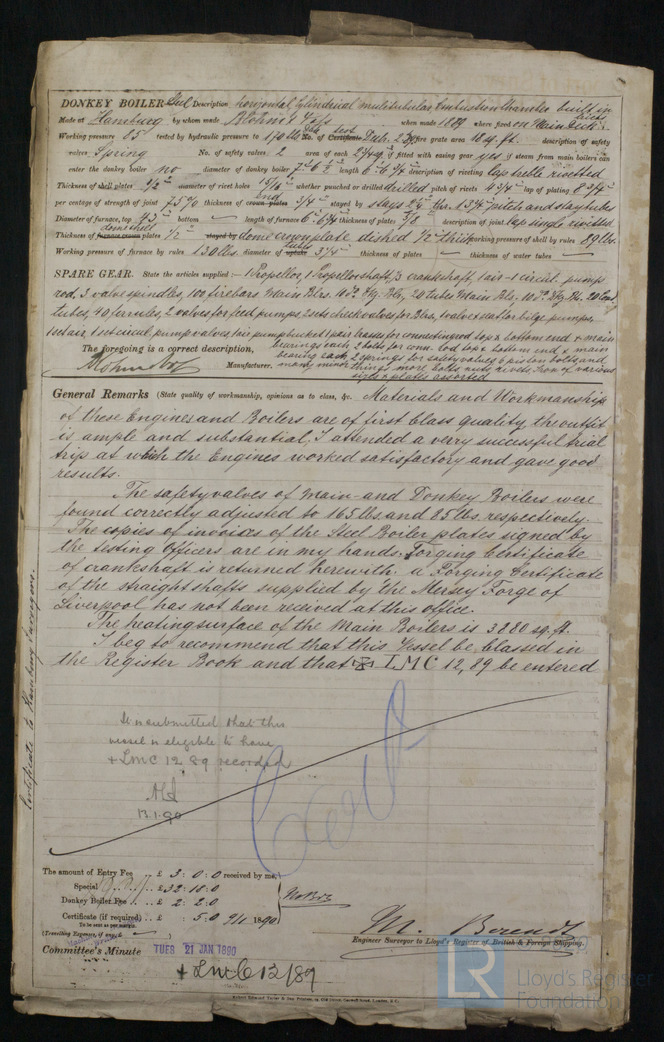 DONKEY BOILER Description horizontal cylindrical multitubular Combustionchamber build in
Made at Hamburg by whom made Blohm & Voss when made 1889 where fixed on Main Deck.
Working pressure 85 tested by hydraulic pressure to 170 lbs No. of Certificate fire grate area 18 sq. ft. description of safety
valves Spring No. of safety valves 2 area of each if fitted with easing gear yes if steam from main boilers can
enter the donkey boiler no diameter of donkey boiler length description of riveting lap treble rivetted
Thickness of shell plates diameter of rivet holes 15/16" whether punched or drilled drilled pitch of rivets 4 3/4" lap of plating 8 3/4"
per centage of strength of joint 75% thickness of crown plates 3/4" stayed by stays pitch and stay tubes
Diameter of furnace, top 43" bottom — length of furnace thickness of plates 3/8" description of joint lap single rivetted
Thickness of furnace crown plates 1/2" stayed by dome crownplate dished 1/2" thick working pressure of shell by rules 89 lbs.
Working pressure of furnace by rules 130 lbs. diameter of uptake tubes 3 1/4" thickness of plates — thickness of water tubes —
SPARE GEAR. State the articles supplied:— 1 Propellor, 1 Propellorshaft, 1/3 crankshaft, 1 air- 1 circul. pump
rod, 3 valve spindles, 100 firebars Main Blrs. 40 do. Dky. Blr, 20 tubes Main Blrs. 10 do. Dky. Blr. 20 Cond
tubes, 40 ferrules, 2 valves for feed pumps 2 sets check valves for Blrs, 1 valve & seat for bilge pumps,
1 set air, 1 set circul. pump valves, 1 air pump bucket 1 pair brasses for connecting rod top & bottom end & main
bearings each, 2 bolts for conn. rod top & bottom end & main
bearing each, 2 springs for safety valves 6 piston bolts and
many minor things more bolts nuts rivets, Iron of various
sizes & plates assorted
The foregoing is a correct description,
Blohm & Voss Manufacturer.
General Remarks (State quality of workmanship, opinions as to class, &c. Materials and Workmanship
of these Engines and Boilers are of first Class quality, the outfit
is ample and substantial. I attended a verry successful trial
trip at which the Engines worked satisfactory and gave good
results.
The safetyvalves of Main- and Donkey Boilers were
found correctly adjusted to 165 lbs. and 85 lbs. respectively.
The copies of invoices of the Steel Boiler plates signed by
the testing Officers are in my hands. Forging Certificate
of crankshaft is returned herewith. a Forging Certificate
of the straight shafts supplied by the Mersey Forge of
Liverpool has not been received at this office.
The heatingsurface of the Main Boilers is 3880 sq. ft.
I beg to recommend that this Vessel be classed in
the Register Book and that ✠ LMC 12,89 be entered
It is submitted that this
vessel is eligible to have
+ LMC 12 89 recorded
13.1.90
Certificate to Hamburg Surveyors.
The amount of Entry Fee .. £ 3 : 0 : 0 received by me,
Special .. £ 32 : 18 : 0
Donkey Boiler Fee .. £ 2 : 2 : 0
Certificate (if required) .. £ : 5 : 0 9/1 1890
To be sent as per margin.
(Travelling Expenses, if any, £ )
M. Berendt
Engineer Surveyor to Lloyd's Register of British & Foreign Shipping.
Committee's Minute TUES 21 JAN 1890
+ LMC 12/89
LR
Lloyd's Register
Foundation